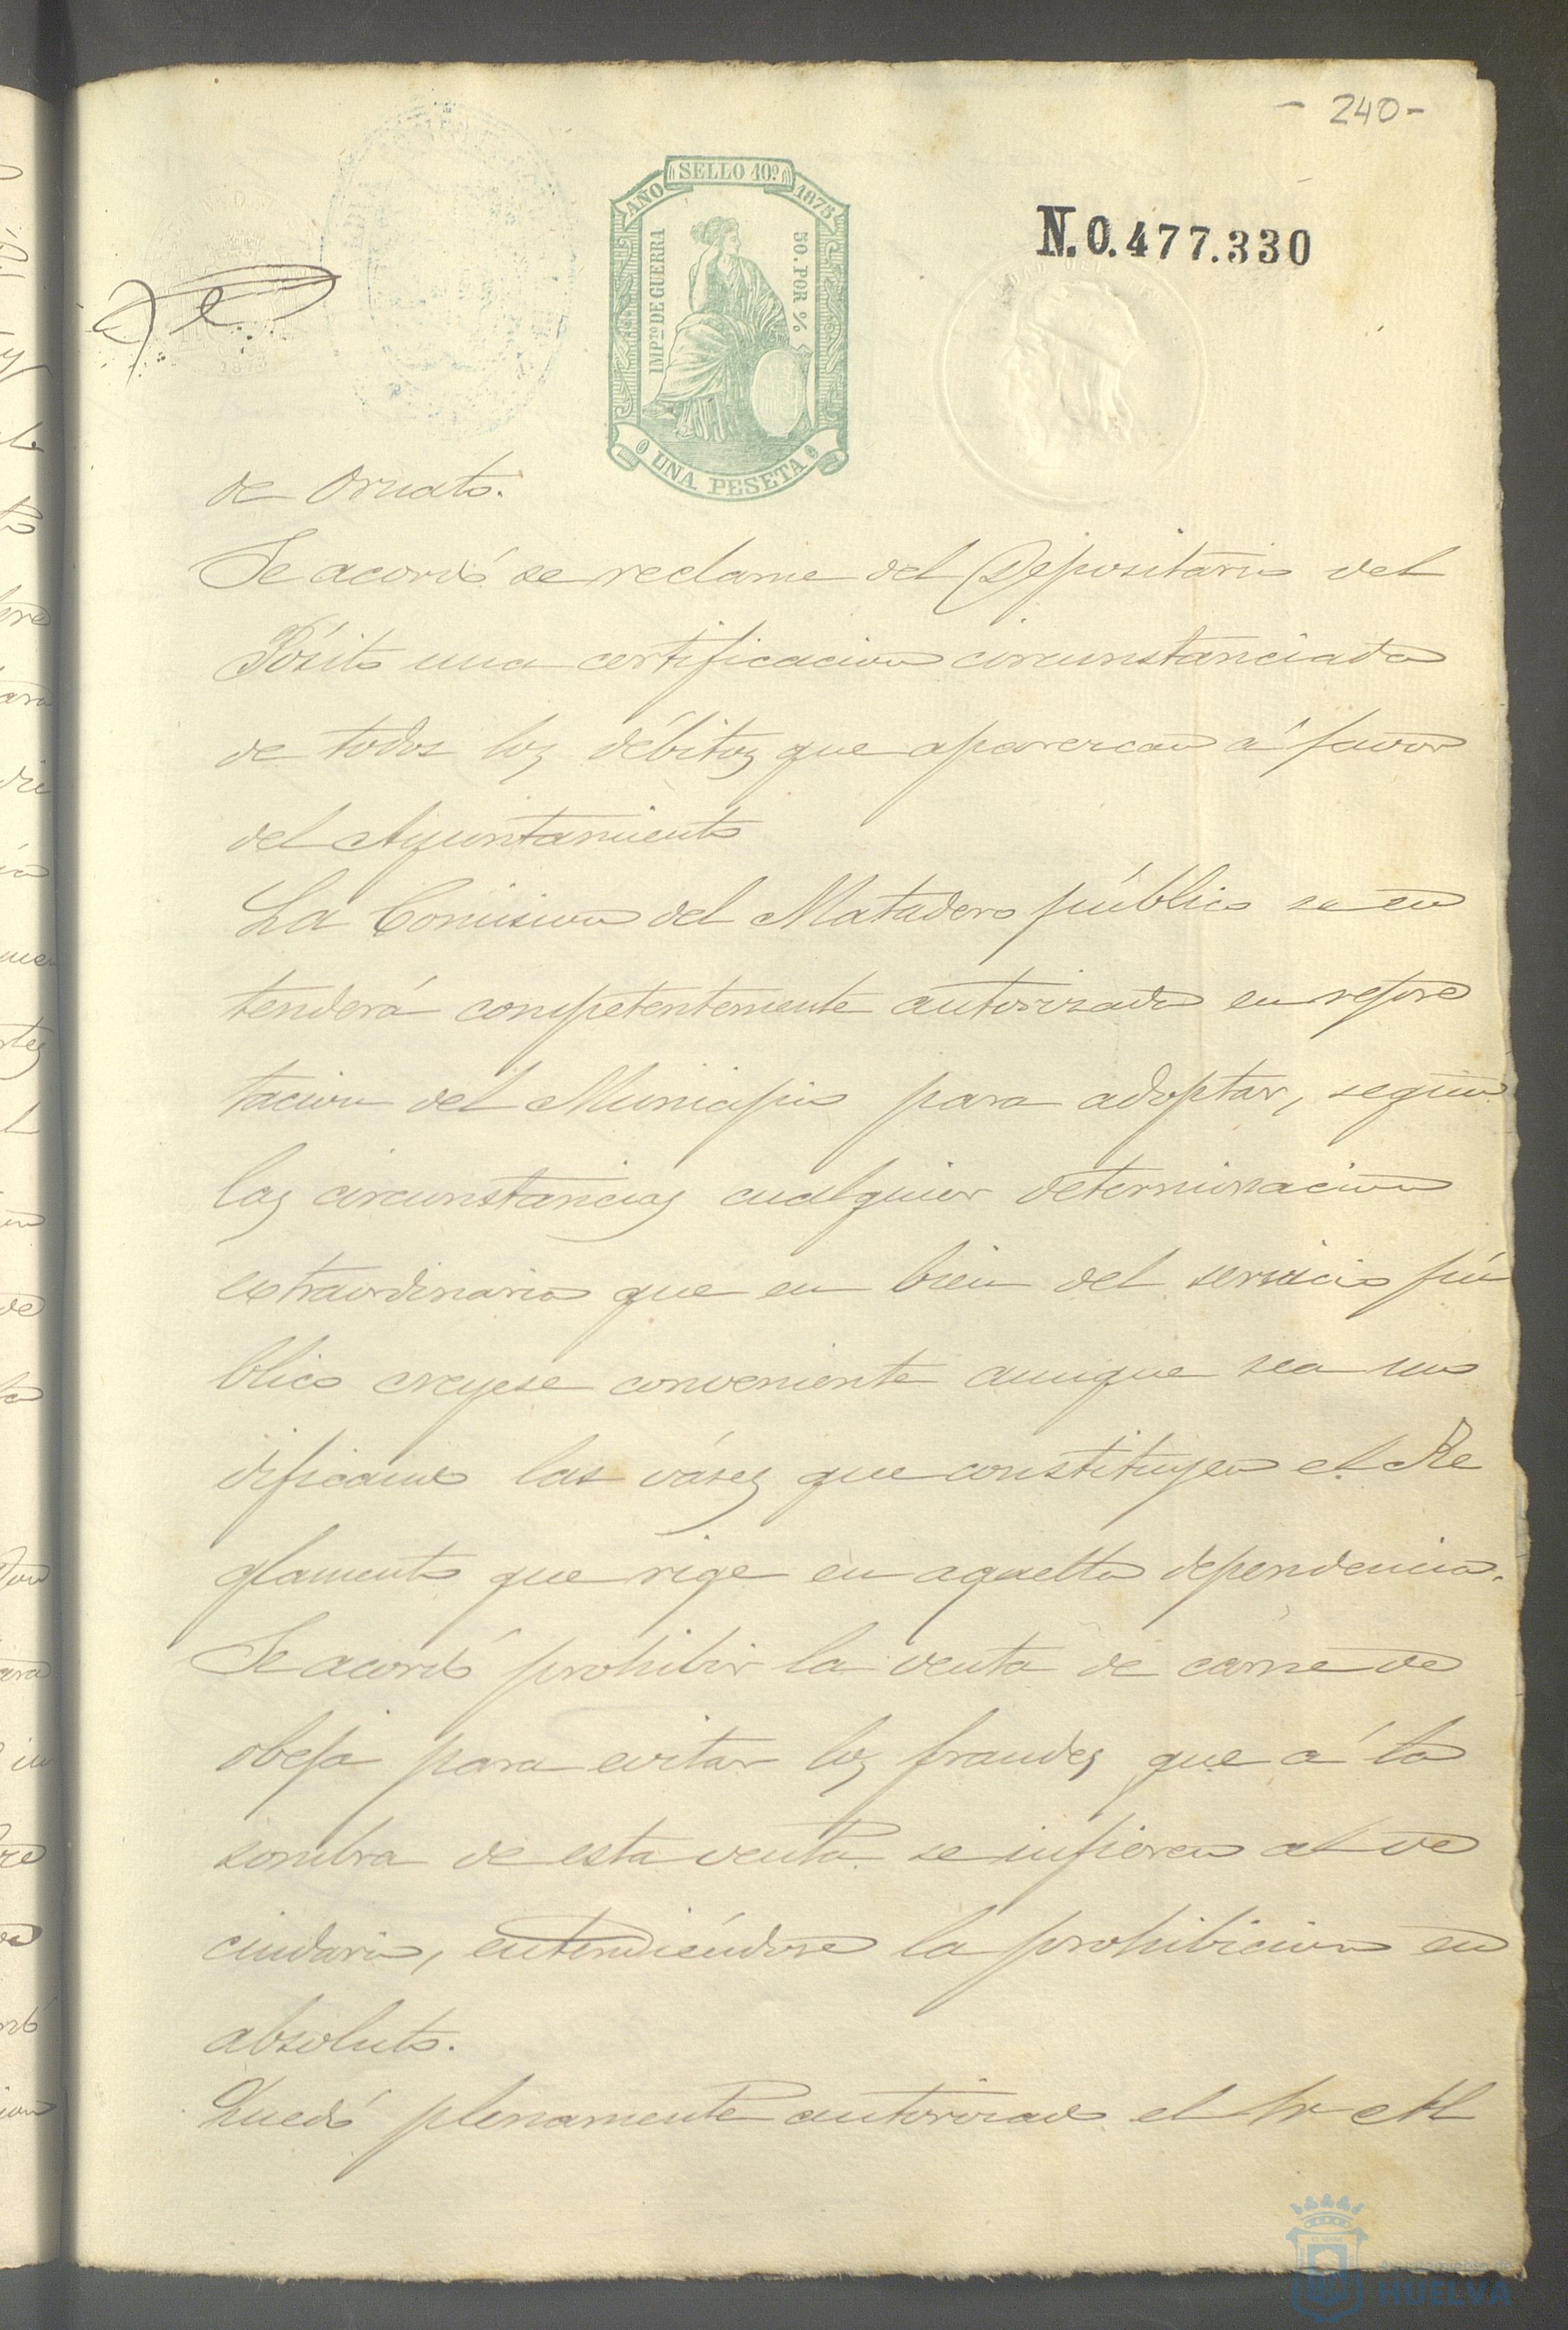 - 240 -
SELLO 10º
AÑO 1875
IMPTO DE GUERRA
50. POR %
UNA PESETA
N.0.477.330
1875
de Ornato.
Se acordó se reclame del Depositario del
Pósito una certificacion circunstanciada
de todos los débitos que aparezcan á favor
del Ayuntamiento
La Comision del Matadero público se en
tenderá competentemente autorizada en repre
tacion del Municipio para adoptar, segun
las circunstancias cualquier determinacion
extraordinaria que en bien del servicio pú
blico creyese conveniente aunque sea mo
dificando las váses que constituyen el Re
glamento que rige en aquella dependencia.
Se acordó prohibir la venta de carne de
obeja para evitar los fraudes que á la
sombra de esta venta se infieren al ve
cindario, entendiéndose la prohibicion en
absoluto.
Quedó plenamente autorizado el Sr Al
Ayuntamiento de
HUELVA